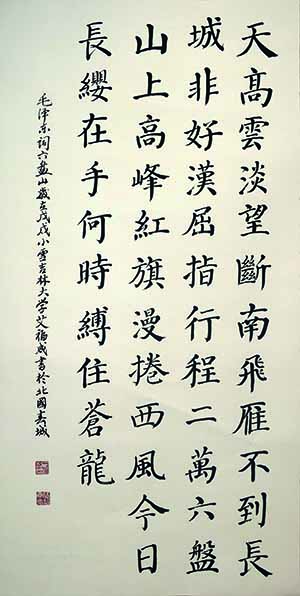 天髙雲淡望斷南飛雁不到長
城非好漢屈指行程二萬六盤
山上高峰紅旗漫捲西風今日
長纓在手何時縛住蒼龍
毛泽东詞六盘山歲在戊戌小雪吉林大学艾福成書於北國春城